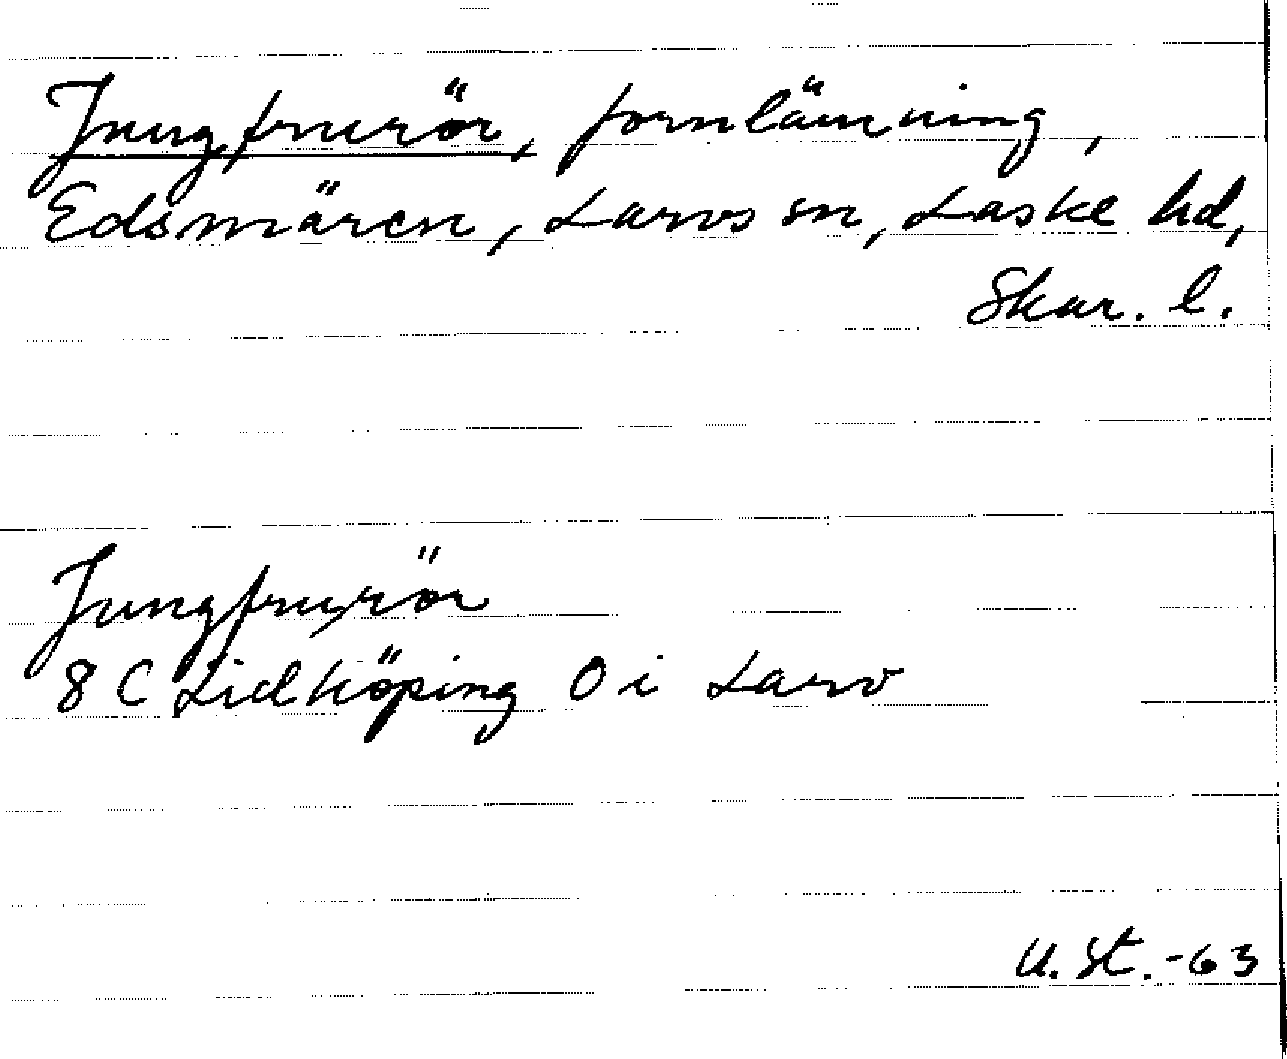 Jungfrurör, fornlämning,
Edsmären, Larvs sn, Laske hd,
Skar. l.
Jungfrurör
8 C Lidköping O i Larv
U. St. -63